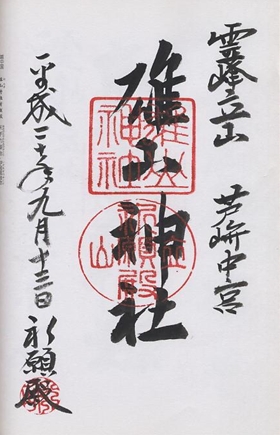 霊峰立山 芦峅中宮
雄山神社
雄山
神社
立山
祈願殿
平成二十年九月十三日 祈願殿